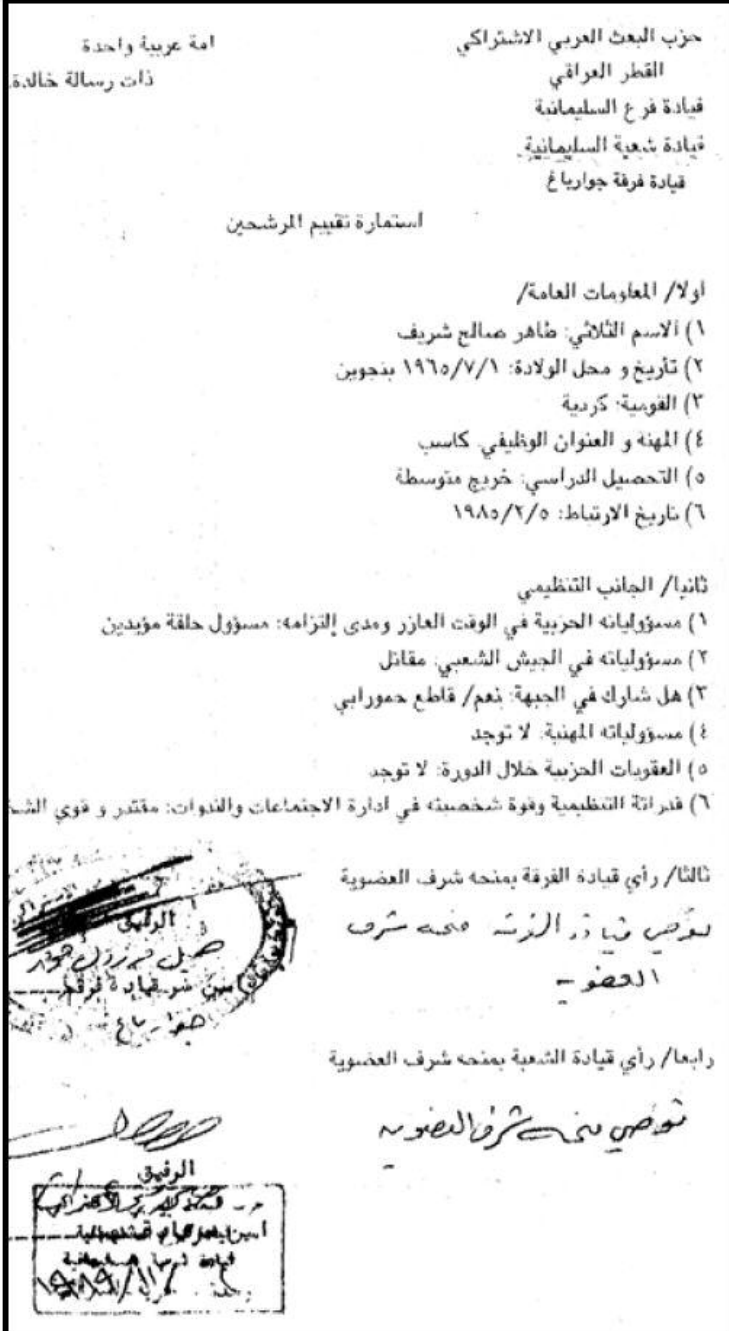 حزب البعث العربي الاشتراكي
القطر العراقي
قيادة فرع السليمانية
قيادة شعبة السليمانية
قيادة فرقة جوارباغ
امة عربية واحدة
ذات رسالة خالدة
استمارة تقييم المرشحين
اولا/ المعلومات العامة/
١) الاسم الثلاثي: طاهر صالح شريف
٢) تأريخ و محل الولادة: ١٩٦٥/٧/١ بنجوين
٣) القومية: كردية
٤) المهنة و العنوان الوظيفي: كاسب
٥) التحصيل الدراسي: خريج متوسطة
٦) تاريخ الارتباط: ١٩٨٥/٢/٥
ثانيا/ الجانب التنظيمي
١) مسؤولياته الحزبية في الوقت العازر ومدى إلتزامه: مسؤول حلقة مؤيدين
٢) مسؤولياته في الجيش الشعبي: مقاتل
٣) هل شارك في الجبهة: نعم/ قاطع حمورابي
٤) مسؤولياته المهنية: لا توجد
٥) العقوبات الحزبية خلال الدورة: لا توجد
٦) قدراتة التنظيمية وقوة شخصيته في ادارة الاجتماعات والندوات: مقتدر و قوي الشخ
ثالثا/ رأي قيادة الفرقة بمنحه شرف العضوية
نوصي قيادة الفرقة منحه شرف
العضوية
الرفيق
امين سر قيادة فرقة
رابعا/ رأي قيادة الشعبة بمنحه شرف العضوية
نوصي منحه شرف العضوية
الرفيق